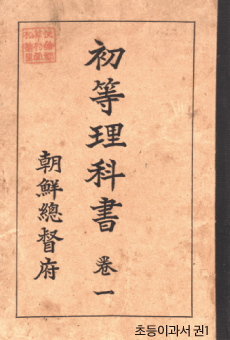 初等理科書 卷一
朝鮮總督府
초등이과서 권1